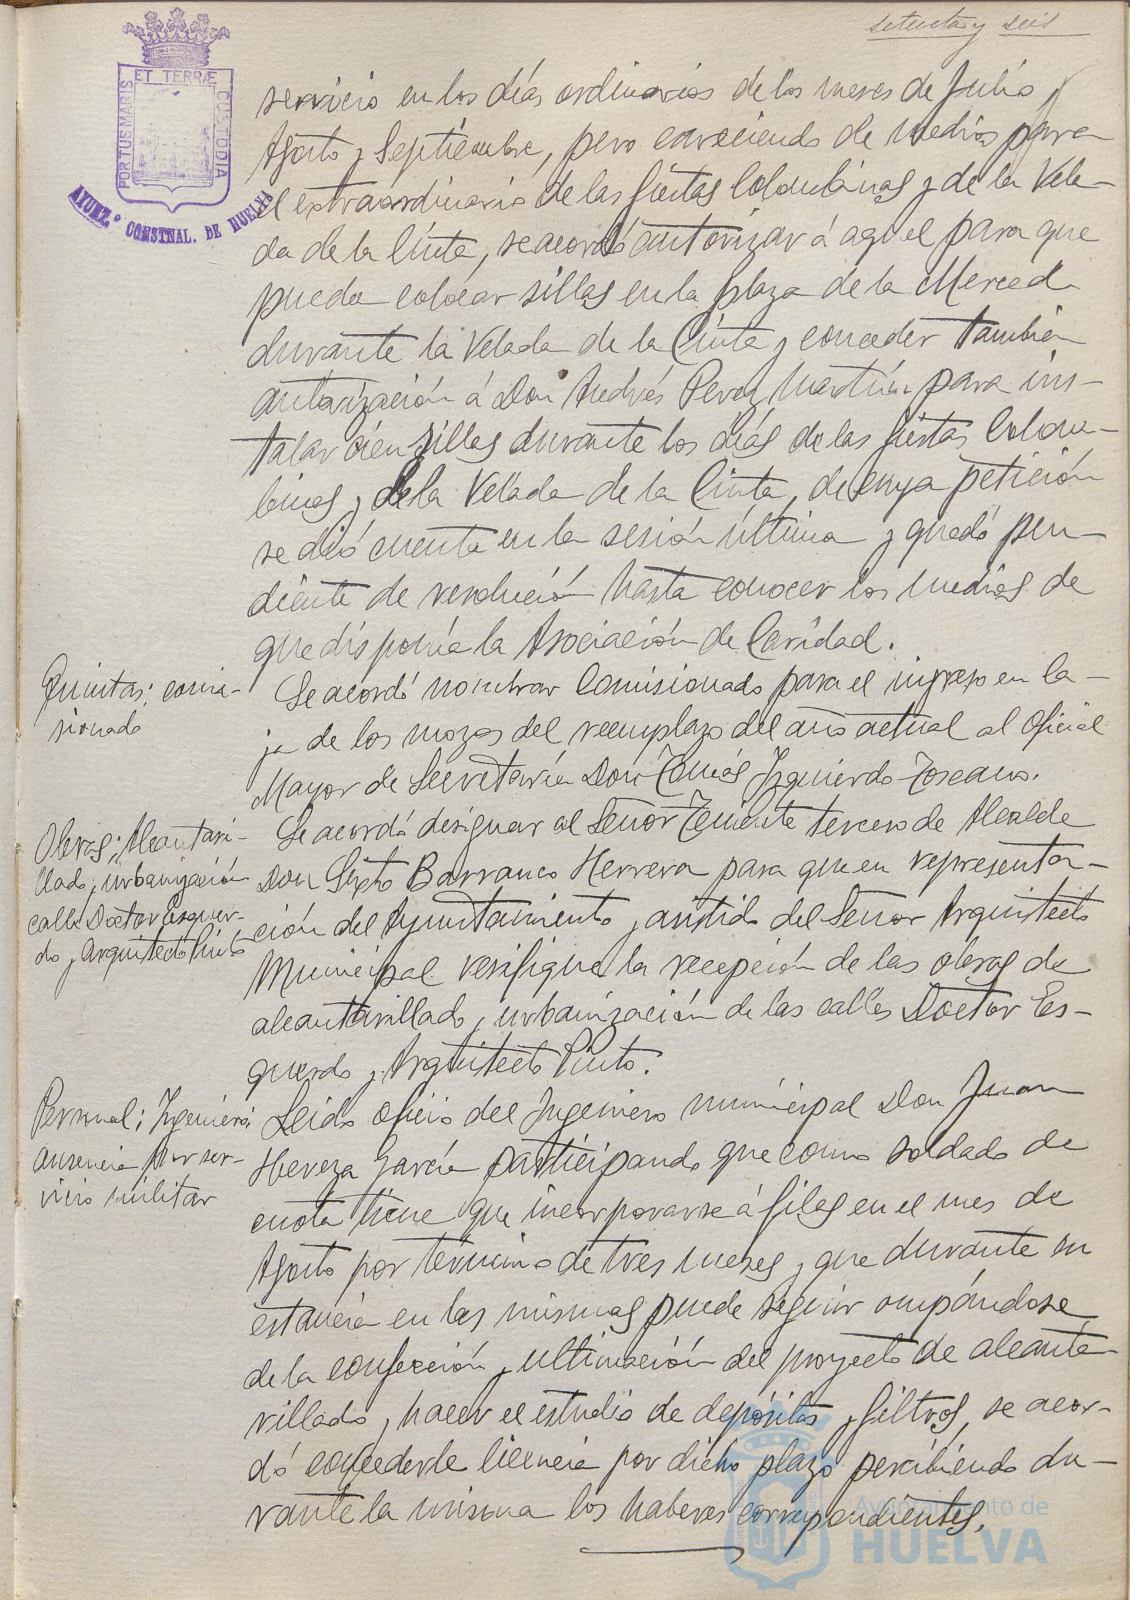 setenta y seis
PORTUS MARIS ET TERRÆ CUSTODIA
AYUNT.º CONSTNAL. DE HUELVA
servicio en los días ordinarios de los meses de Julio,
Agosto y Septiembre, pero careciendo de medios para
el extraordinario de las fiestas Colombinas y de la Vela-
da de la Cinta, se acordó autorizar á aquel para que
pueda colocar sillas en la plaza de la Merced
durante la Velada de la Cinta y conceder también
autorización á Don Andrés Perez Martín para ins-
talar cien sillas durante los días de las fiestas Colom-
binas y de la Velada de la Cinta, de cuya petición
se dió cuenta en la sesión última y quedó pen-
diente de resolución hasta conocer los medios de
que disponía la Asociación de Caridad.
Quintas; comi-
sionado
Se acordó nombrar Comisionado para el ingreso en Ca-
ja de los mozos del reemplazo del año actual al Oficial
Mayor de Secretaría Don Tomás Izquierdo Toscano.
Obras; Alcantari-
llado y urbanización
calle Doctor Esquer-
do y Arquitecto Pinto
Se acordó designar al Señor Teniente tercero de Alcalde
Don Sixto Barranco Herrera para que en representa-
ción del Ayuntamiento y asistido del Señor Arquitecto
Municipal verifique la recepción de las obras de
alcantarillado y urbanización de las calles Doctor Es-
querdo y Arquitecto Pinto.
Personal; Ingeniero;
ausencia por ser-
vicio militar
Leido oficio del Ingeniero municipal Don Juan
Hereza García participando que como soldado de
cuota tiene que incorporarse á filas en el mes de
Agosto por término de tres meses y que durante su
estancia en las mismas puede seguir ocupándose
de la confección y ultimación del proyecto de alcanta-
rillado y hacer el estudio de depósitos y filtros, se acor-
dó concederle licencia por dicho plazo percibiendo du-
rante la misma los haberes correspondientes.
Ayuntamiento de
HUELVA